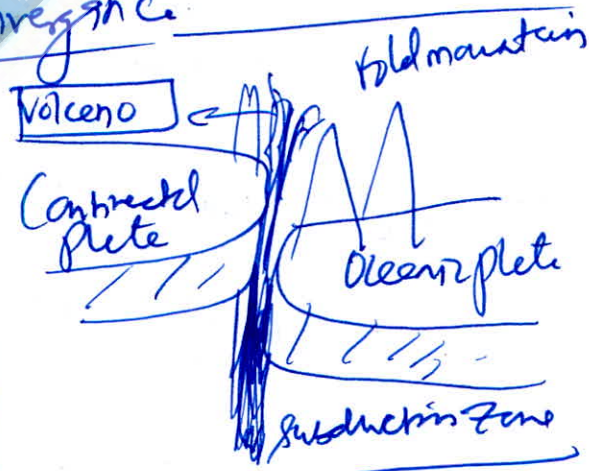 vergence
fold mountain
Volceno
Continectel
plete
Oceenic plete
subduction Zone